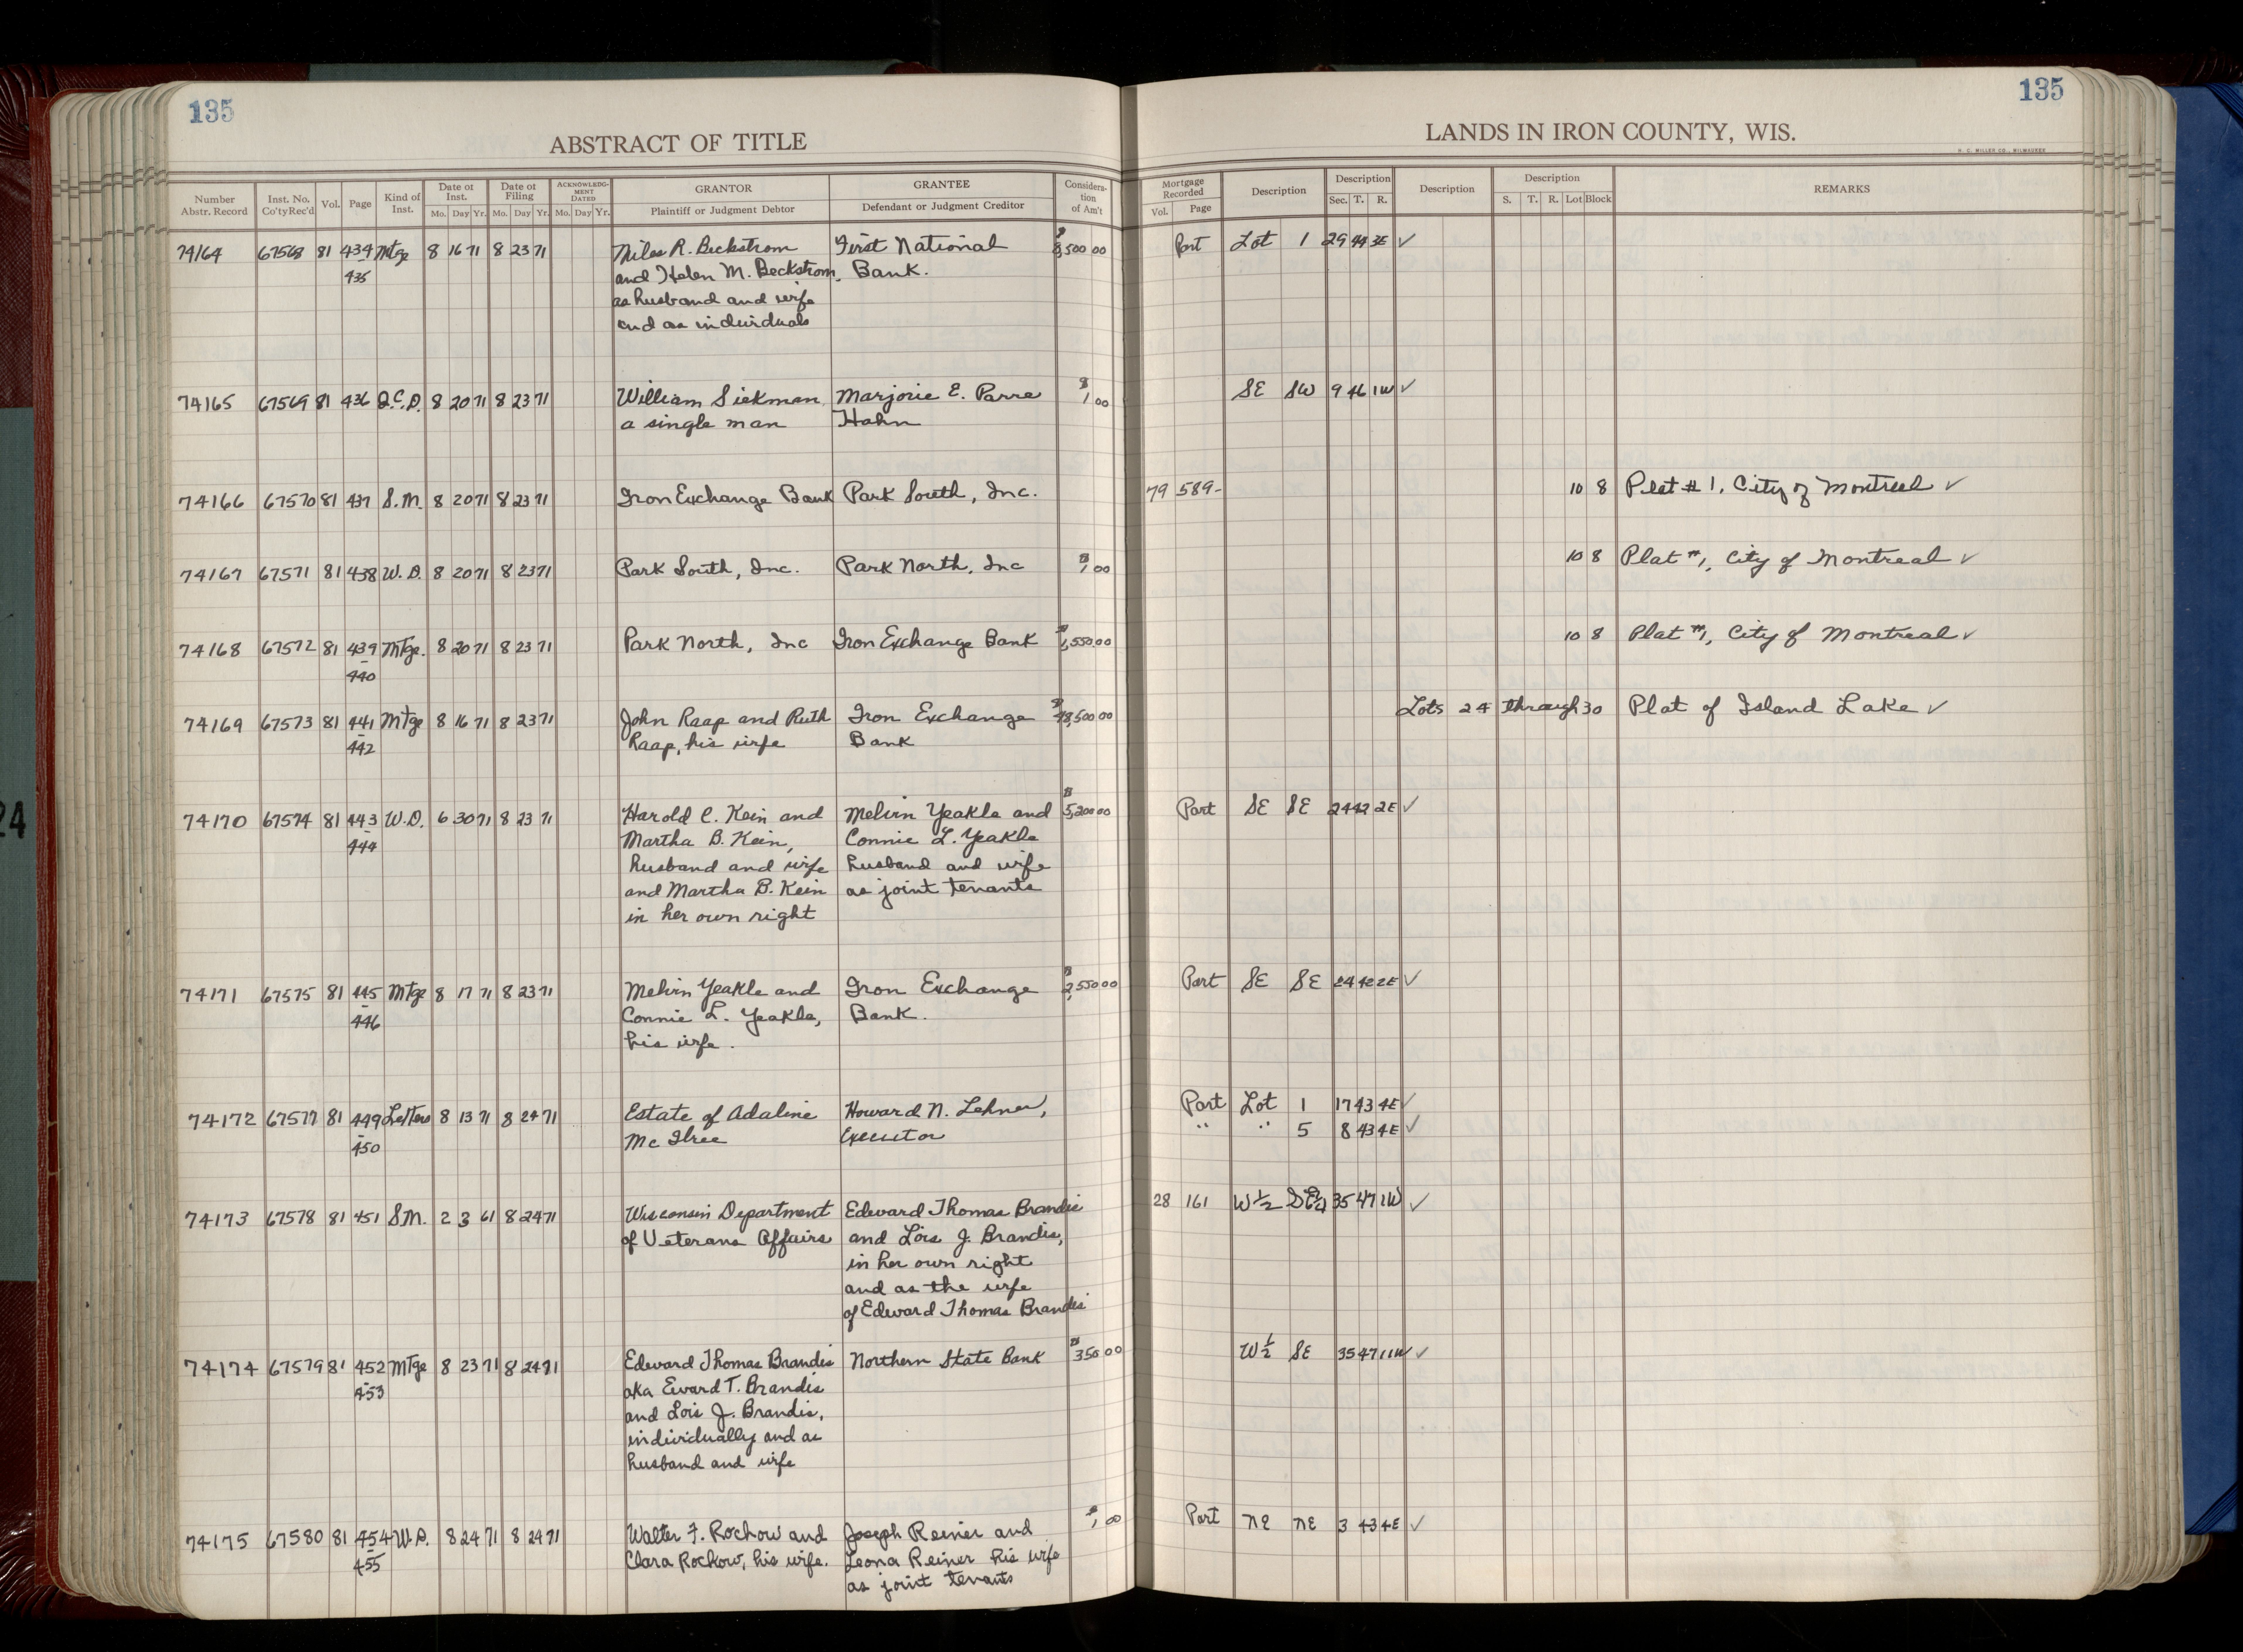 135
135
ABSTRACT OF TITLE
LANDS IN IRON COUNTY, WIS.
H. C. MILLER CO., MILWAUKEE
Number Abstr. Record
Inst. No. Co'ty Rec'd
Vol.
Page
Kind of Inst.
Date of Inst.
Mo. Day Yr.
Date of Filing
Mo. Day Yr.
ACKNOWLEDGMENT DATED
Mo. Day Yr.
GRANTOR
Plaintiff or Judgment Debtor
GRANTEE
Defendant or Judgment Creditor
Consideration of Am't
Mortgage Recorded
Vol. Page
Description
Description
Sec. T. R.
Description
Description
S. T. R. Lot Block
REMARKS
74164 67568 81 434 Mtge 8 16 71 8 23 71 Niles R. Beckstrom First National $ 8,500 00 Part Lot 1 29 44 3E ✓
435 and Helen M. Beckstrom, Bank.
as husband and wife
and as individuals
74165 67569 81 436 Q.C.D. 8 20 71 8 23 71 William Siekman Marjorie E. Parre $ 1 00 SE SW 9 46 1W ✓
a single man Hahn
74166 67570 81 437 S.M. 8 20 71 8 23 71 Iron Exchange Bank Park South, Inc. 79 589- 10 8 Plat # 1, City of Montreal ✓
74167 67571 81 438 W.D. 8 20 71 8 23 71 Park South, Inc. Park North, Inc $ 1 00 10 8 Plat #1, City of Montreal ✓
74168 67572 81 439 Mtge. 8 20 71 8 23 71 Park North, Inc Iron Exchange Bank 10 8 Plat #1, City of Montreal ✓
440
74169 67573 81 441 Mtge 8 16 71 8 23 71 John Raap and Ruth Iron Exchange Lots 24 through 30 Plat of Island Lake ✓
442 Raap, his wife Bank
74170 67574 81 443 W.D. 6 30 71 8 23 71 Harold C. Kein and Melvin Yeakle and $ 5,200 00 Part SE SE 24 42 2E ✓
444 Martha B. Kein, Connie L. Yeakle
husband and wife husband and wife
and Martha B. Kein as joint tenants
in her own right
74171 67575 81 445 Mtge 8 17 71 8 23 71 Melvin Yeakle and Iron Exchange $ 2,550 00 Part SE SE 24 42 2E ✓
446 Connie L. Yeakle, Bank.
his wife.
74172 67577 81 449 Letters 8 13 71 8 24 71 Estate of Adaline Howard N. Lehner, Part Lot 1 17 43 4E ✓
450 Mc Ilree Executor " " 5 8 43 4E ✓
74173 67578 81 451 S.M. 2 3 61 8 24 71 Wisconsin Department Edward Thomas Brandis 28 161 W½ 35 47 1W ✓
of Veterans Affairs and Lois J. Brandis,
in her own right
and as the wife
of Edward Thomas Brandis
74174 67579 81 452 Mtge 8 23 71 8 24 71 Edward Thomas Brandis Northern State Bank $ 350 00 W½ SE 35 47 1W ✓
453 aka Eward T. Brandis
and Lois J. Brandis,
individually and as
husband and wife
74175 67580 81 454 W.D. 8 24 71 8 24 71 Walter F. Rochow and Joseph Reiner and $ 1 00 Part NE NE 3 43 4E ✓
455 Clara Rochow, his wife. Leona Reiner his wife
as joint tenants
24